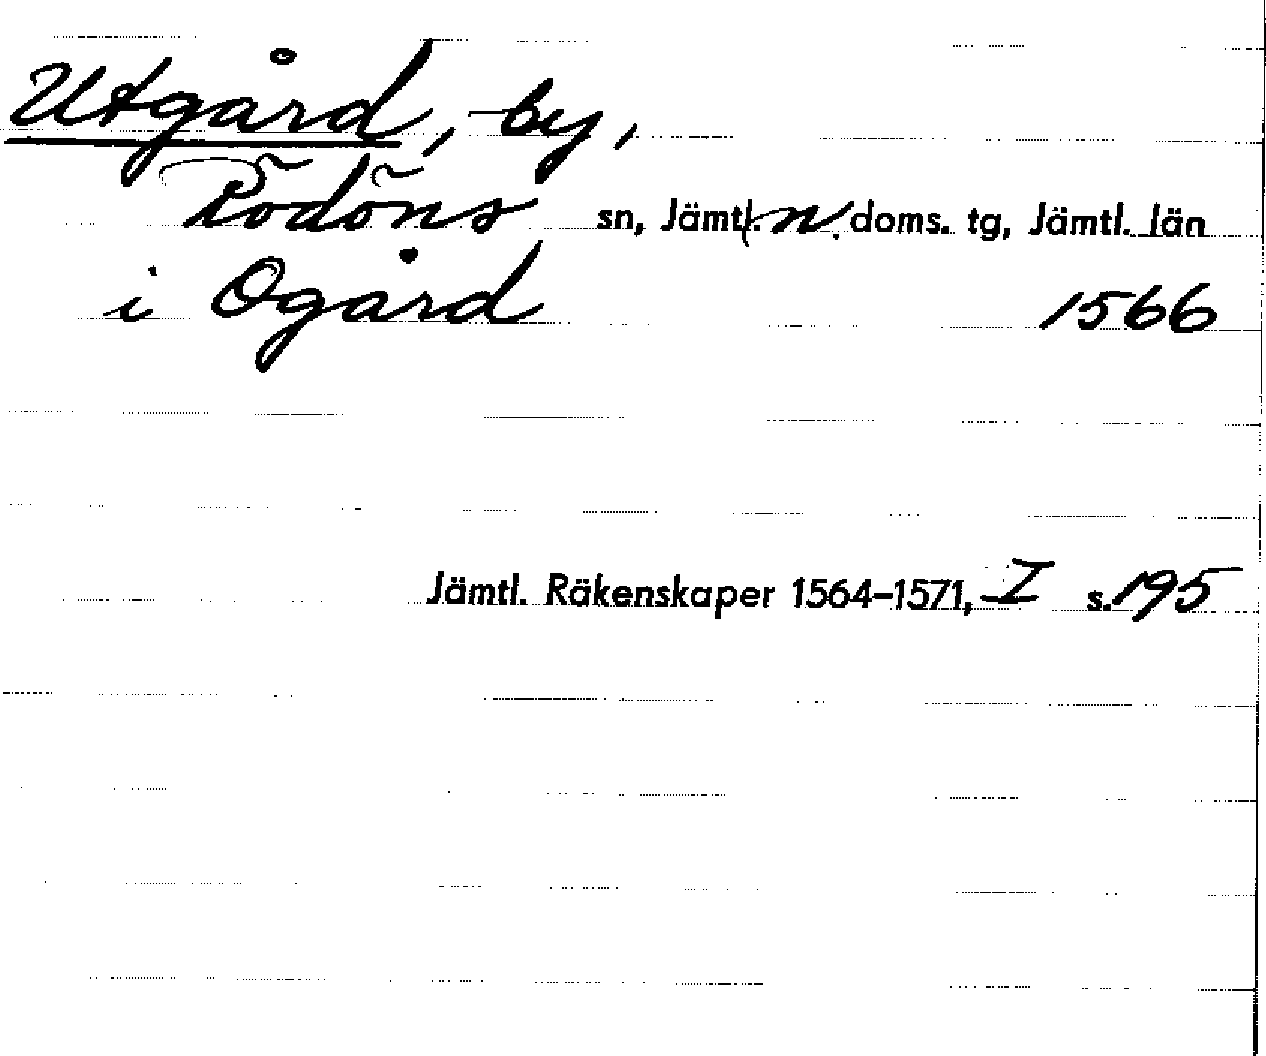 Utgård, by,
Rödöns sn, Jämtl. n. doms. tg, Jämtl. län
i Ogård 1566
Jämtl. Räkenskaper 1564-1571, I s. 195